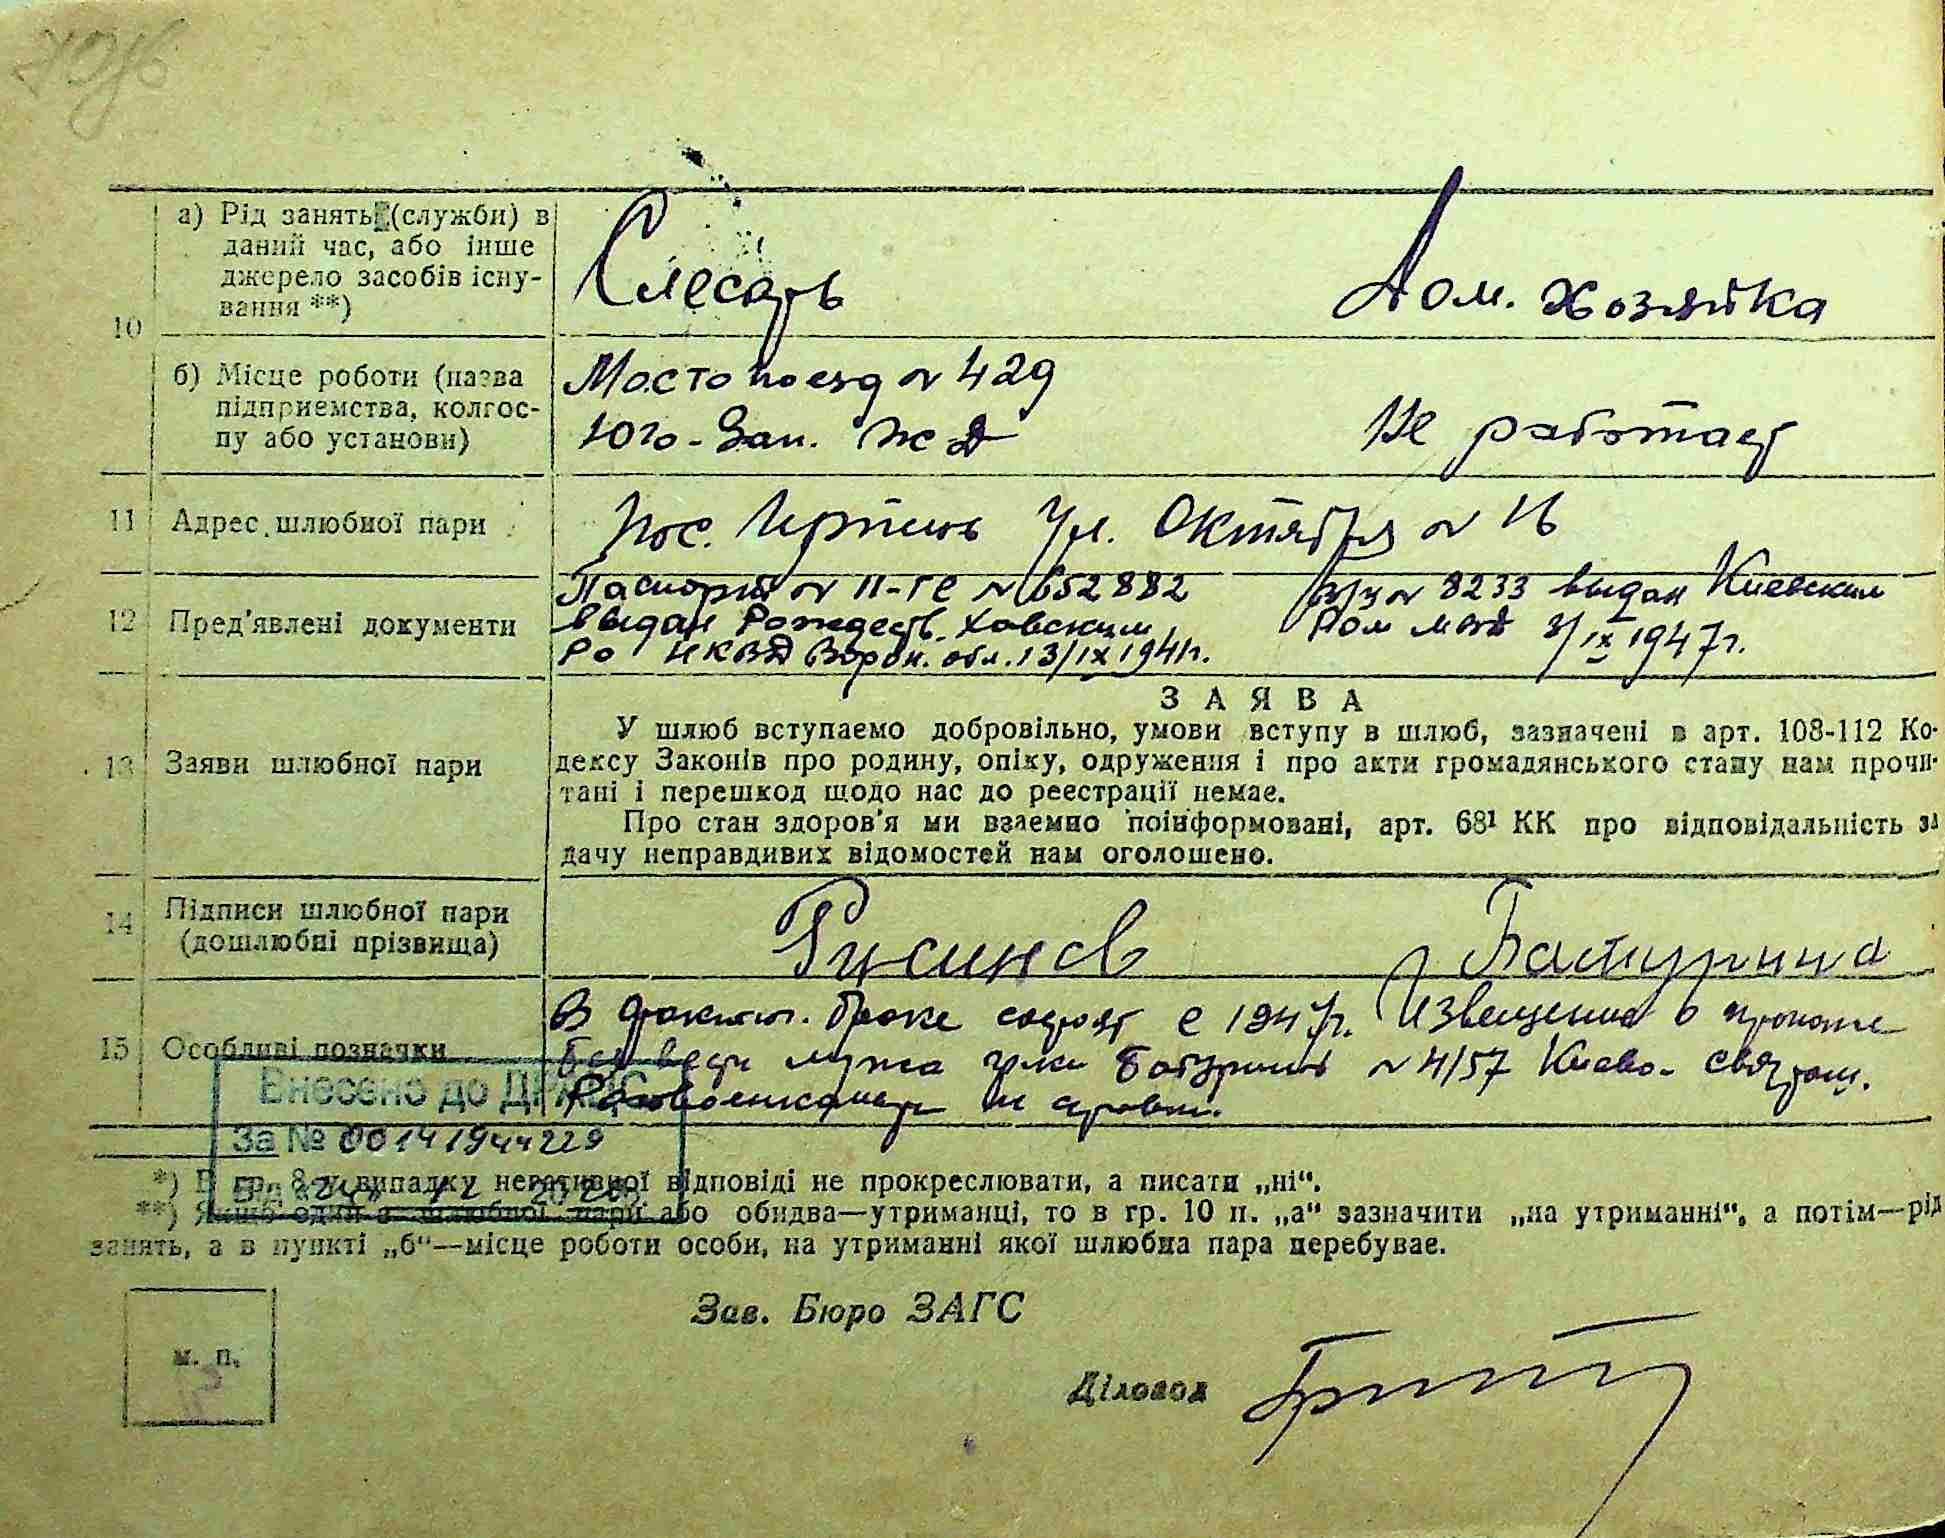 а) Рід занять (служби) в
даний час, або інше
джерело засобів існу-
вання **)
Слесарь
Дом. хозяйка
10
б) Місце роботи (назва
підприємства, колгос-
пу або установи)
Мостопоезд № 429
Юго-Зап. ЖД
Не работает
11 Адрес шлюбної пари
Пос. Ирпень Ул. Октября № 16
12 Пред'явлені документи
Паспорт № II-ГЕ № 652882
выдан Рождеств. Хавским
РО НКВД Ворон. обл. 13/IX 1941г.
№ 8233 выдан Киевским
8/IX 1947г.
13 Заяви шлюбної пари
ЗАЯВА
У шлюб вступаємо добровільно, умови вступу в шлюб, зазначені в арт. 108-112 Ко-
дексу Законів про родину, опіку, одруження і про акти громадянського стану нам прочи-
тані і перешкод щодо нас до реєстрації немає.
Про стан здоров'я ми взаємно поінформовані, арт. 68¹ КК про відповідальність за
дачу неправдивих відомостей нам оголошено.
14 Підписи шлюбної пари
(дошлюбні прізвища)
Русинов
Батурина
15 Особливі позначки
В фактич. браке состоят с 1947г. Извещение о пропаже
без вести мужа гр-ки Батуриной № 4/57 Киево-Святош.
Райвоенкомат
Внесено до ДРАЦС
За № 00141944229
*) В гр. 8 у випадку негативної відповіді не прокреслювати, а писати „ні“.
**) Якщо один з шлюбної пари або обидва—утриманці, то в гр. 10 п. „а“ зазначити „на утриманні“, а потім—рід
занять, а в пункті „б“—місце роботи особи, на утриманні якої шлюбна пара перебуває.
Зав. Бюро ЗАГС
м. п.
Діловод